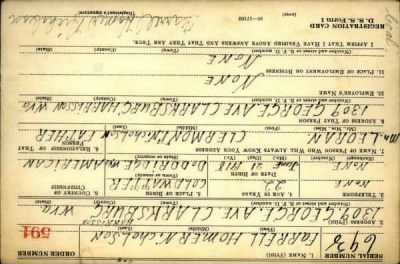 REGISTRATION CARD
D. S. S. Form 1
16—17105
ORDER NUMBER
591
1. NAME (Print)
FARRELL HOMER Nicholson
2. ADDRESS (Print)
1309 GEORGE. AVE CLARKSBURG WVA
3. TELEPHONE
NONE
4. AGE IN YEARS
22
DATE OF BIRTH
June 1918
5. PLACE OF BIRTH
COLDWATTER
DODDRIDGE
6. COUNTRY OF CITIZENSHIP
AMERICAN
7. NAME OF PERSON WHO WILL ALWAYS KNOW YOUR ADDRESS
Mr. LORAIN CLERMONT Nicholson FATHER
8. RELATIONSHIP OF THAT PERSON
9. ADDRESS OF THAT PERSON
1309 GEORGE AVE CLARKSBURG HARRISON WVA
10. EMPLOYER'S NAME
NONE
11. PLACE OF EMPLOYMENT OR BUSINESS
NONE
I AFFIRM THAT I HAVE VERIFIED ABOVE ANSWERS AND THAT THEY ARE TRUE.